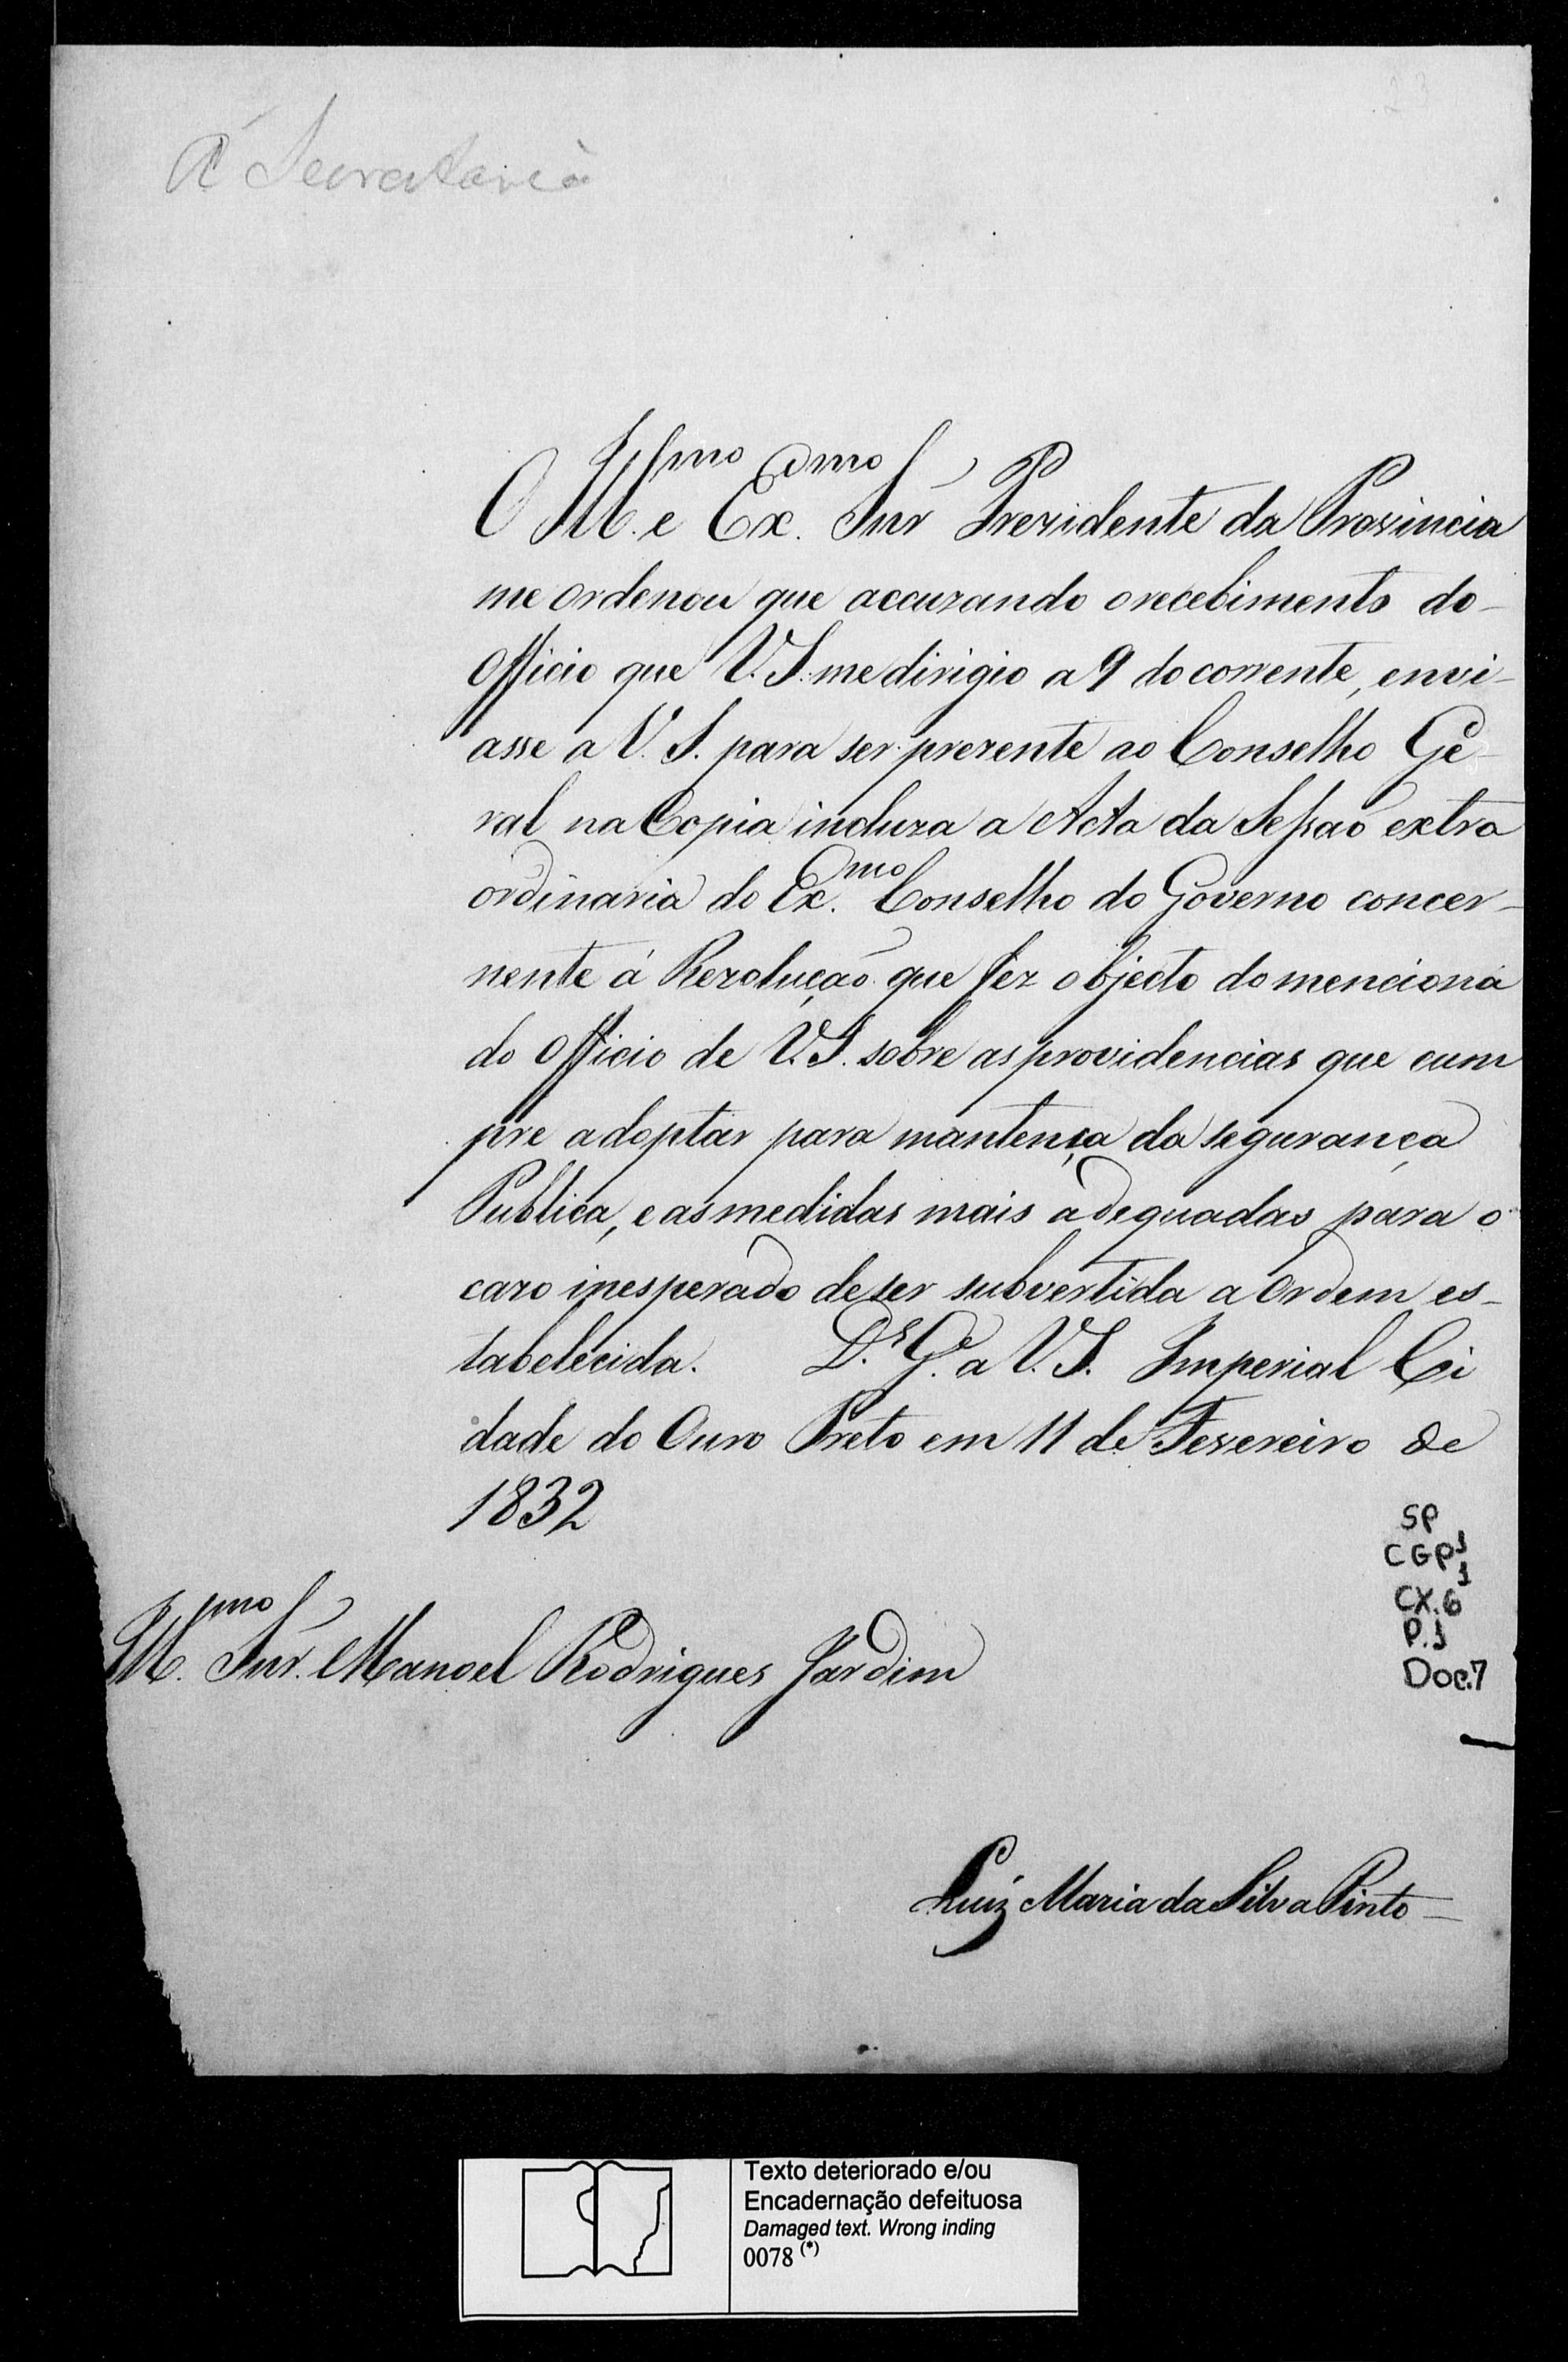 Á Secretaria
23
O Ill.mo e Ex.mo Snr Prezidente da Provincia
me ordenou que accuzando o recebimento do
Officio que V. S. me dirigio a 9 do corrente, envi-
asse a V. S. para ser prezente ao Conselho Ge-
ral na Copia incluza a Acta da Sessaõ extra
ordinaria do Ex.mo Conselho do Governo concer-
nente á Rezoluçaõ que fez objecto do menciona
do Officio de V. S. sobre as providencias que cum
pre adoptar para mantença da segurança
Publica, e as medidas mais adequadas para o
cazo inesperado de ser subvertida a Ordem es-
tabelecida. D.s G.e a V. S. Imperial Ci
dade do Ouro Preto em 11 de Fevereiro de
1832
Ill.mo Snr. Manoel Rodrigues Jardim
SP
CGP1
1
CX.6
P.1
Doc.7
Luiz Maria da Silva Pinto
Texto deteriorado e/ou
Encadernação defeituosa
Damaged text. Wrong inding
0078 (*)